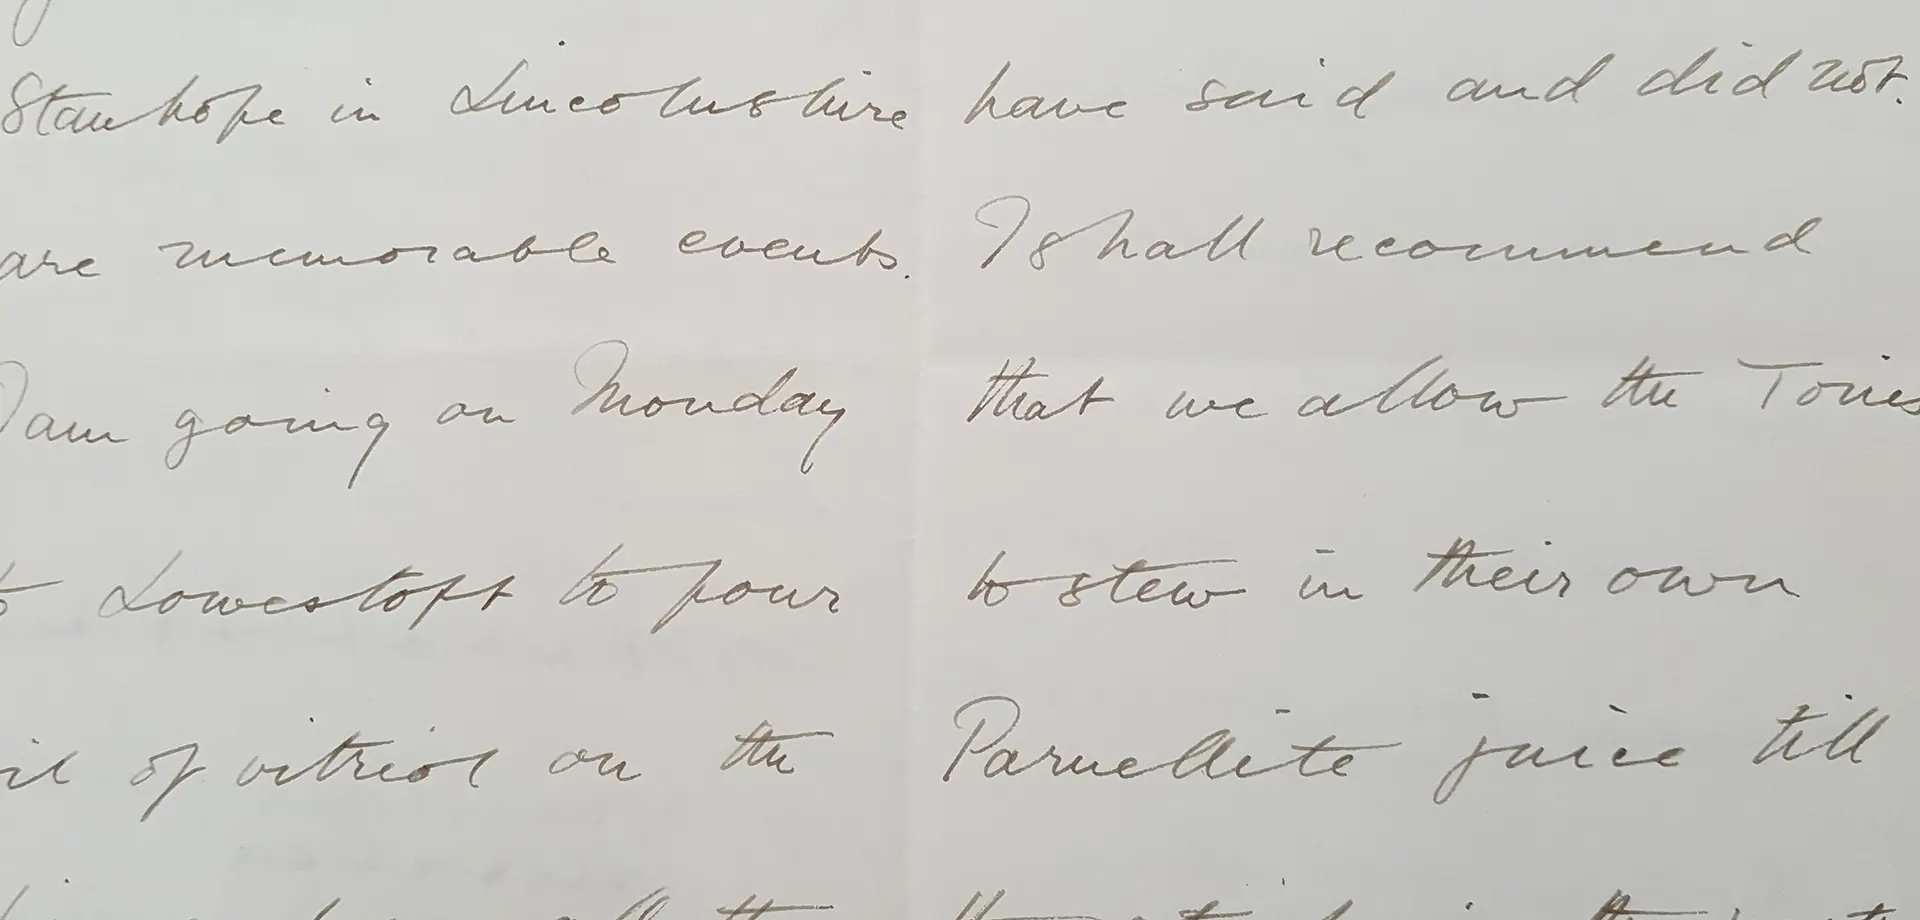 Stanhope in Lincolnshire
are memorable events.
I am going on Monday
to Lowestoft to pour
oil of vitriol on the
have said and did not.
I shall recommend
that we allow the Tories
to stew in their own
Parnellite juice till